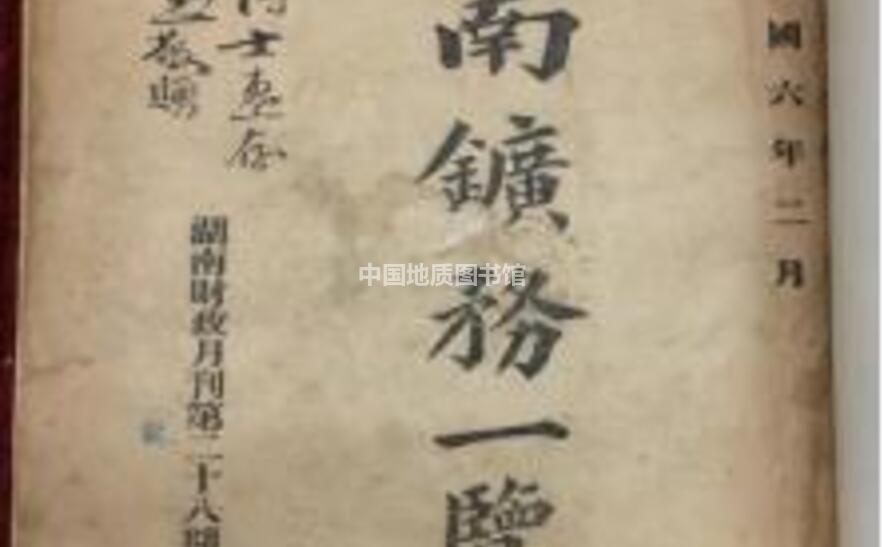 國六年二月
南鑛務一覽
士惠存
敬贈
湖南財政月刊第二十八
中国地质图书馆